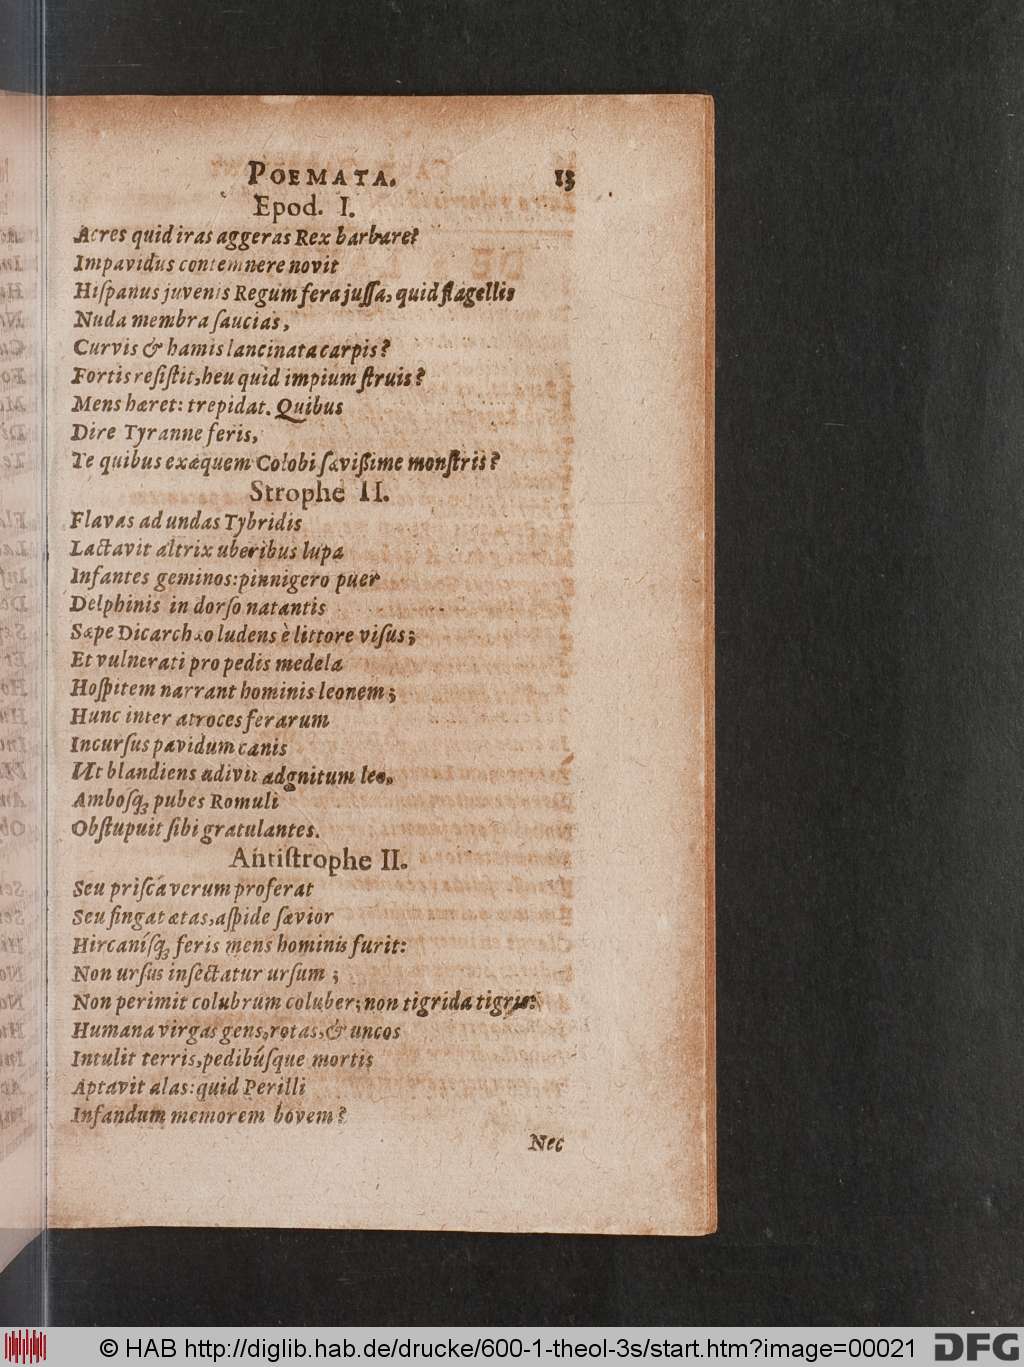 POEMATA. 13
Epod. I.
Acres quid iras aggeras Rex barbare?
Impavidus contemnere novit
Hiſpanus juvenis Regum fera juſſa, quid flagellis
Nuda membra ſaucias,
Curvis & hamis lancinata carpis?
Fortis reſiſtit, heu quid impium ſtruis?
Mens hæret: trepidat. Quibus
Dire Tyranne feris,
Te quibus exæquem Colobi ſæviſſime monſtris?
Strophe II.
Flavas ad undas Tybridis
Lactavit altrix uberibus lupa
Infantes geminos: pinnigero puer
Delphinis in dorſo natantis
Sæpe Dicarchæo ludens è littore viſus;
Et vulnerati pro pedis medela
Hoſpitem narrant hominis leonem;
Hunc inter atroces ferarum
Incurſus pavidum canis
Ut blandiens adivit adgnitum leo,
Ambosq; pubes Romuli
Obſtupuit ſibi gratulantes.
Antiſtrophe II.
Seu priſca verum proferat
Seu fingat ætas, aſpide ſævior
Hircaníſq; feris mens hominis furit:
Non urſus inſectatur urſum;
Non perimit colubrum coluber; non tigrida tigris:
Humana virgas gens, rotas, & uncos
Intulit terris, pedibúſque mortis
Aptavit alas: quid Perilli
Infandum memorem bovem?
Nec
© HAB http://diglib.hab.de/drucke/600-1-theol-3s/start.htm?image=00021
DFG